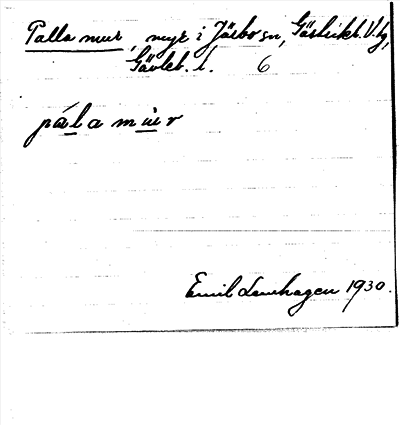 Palla mur, myr i Järbo sn, Gästrikl. V. tg,
Gävleb. l. 6
pála mùr
Emil Lenhagen 1930.